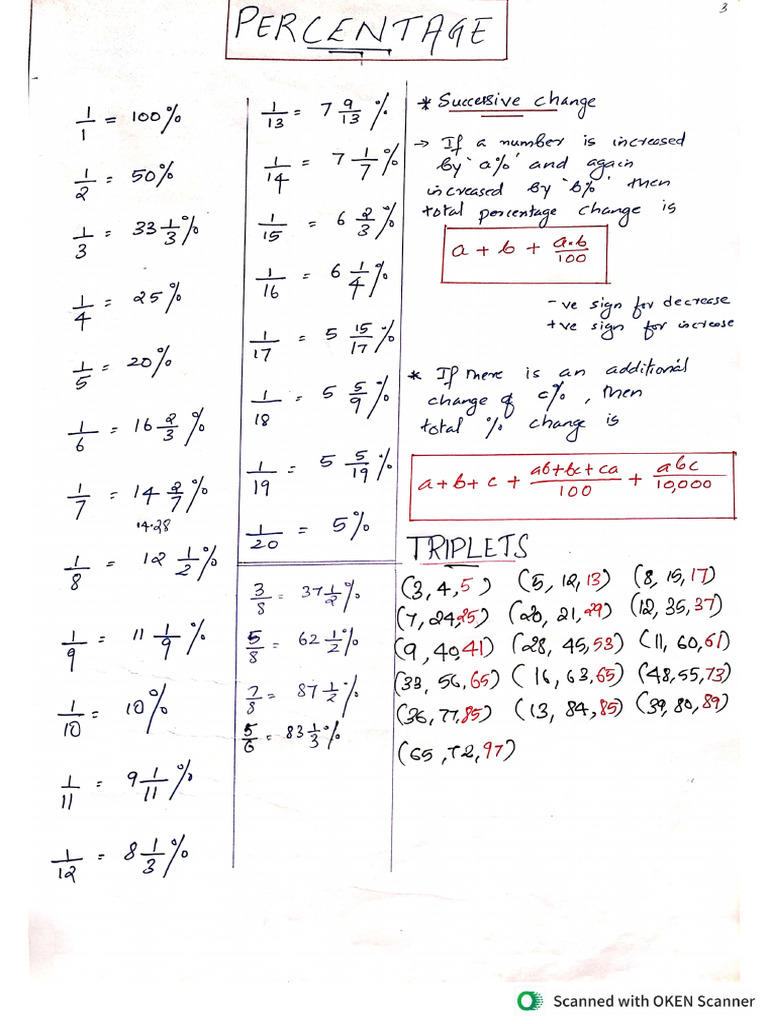 3
PERCENTAGE
1/1 = 100%
1/2 = 50%
1/3 = 33 1/3%
1/4 = 25%
1/5 = 20%
1/6 = 16 2/3%
1/7 = 14 2/7%
14.28
1/8 = 12 1/2%
1/9 = 11 1/9%
1/10 = 10%
1/11 = 9 1/11%
1/12 = 8 1/3%
1/13 = 7 9/13%
1/14 = 7 1/7%
1/15 = 6 2/3%
1/16 = 6 1/4%
1/17 = 5 15/17%
1/18 = 5 5/9%
1/19 = 5 5/19%
1/20 = 5%
3/8 = 37 1/2%
5/8 = 62 1/2%
7/8 = 87 1/2%
5/6 = 83 1/3%
* Successive change
→ If a number is increased
by 'a%' and again
increased by 'b%' then
total percentage change is
a + b + a.b/100
-ve sign for decrease
+ve sign for increase
* If there is an additional
change of c%, then
total % change is
a + b + c + ab+bc+ca/100 + abc/10,000
TRIPLETS
(3, 4, 5) (5, 12, 13) (8, 15, 17)
(7, 24, 25) (20, 21, 29) (12, 35, 37)
(9, 40, 41) (28, 45, 53) (11, 60, 61)
(33, 56, 65) (16, 63, 65) (48, 55, 73)
(36, 77, 85) (13, 84, 85) (39, 80, 89)
(65, 72, 97)
Scanned with OKEN Scanner